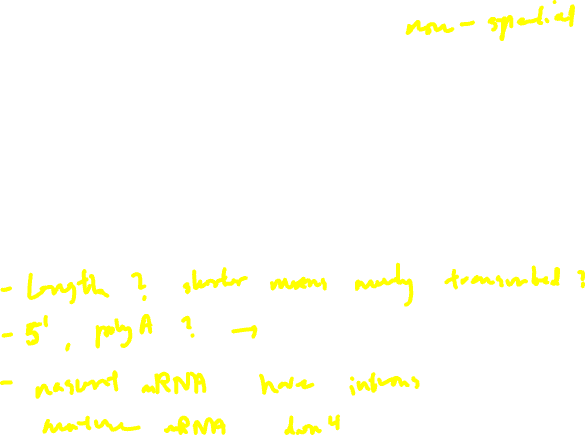 non - spatial
- Length ? shorter means newly transcribed ?
- 5' , poly A ? →
- nascent mRNA have introns
mature mRNA don't